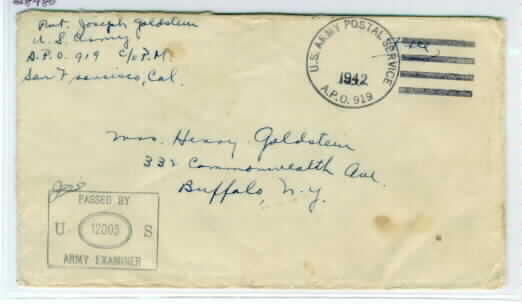 Pvt. Joseph Goldstein
U.S. Army
A.P.O. 919 c/o P.M.
San Francisco, Cal.
U.S. ARMY POSTAL SERVICE
1942
A.P.O. 919
Free
Mrs. Henry Goldstein
332 Commonwealth Ave.
Buffalo, N.Y.
PASSED BY
U 12005 S
ARMY EXAMINER